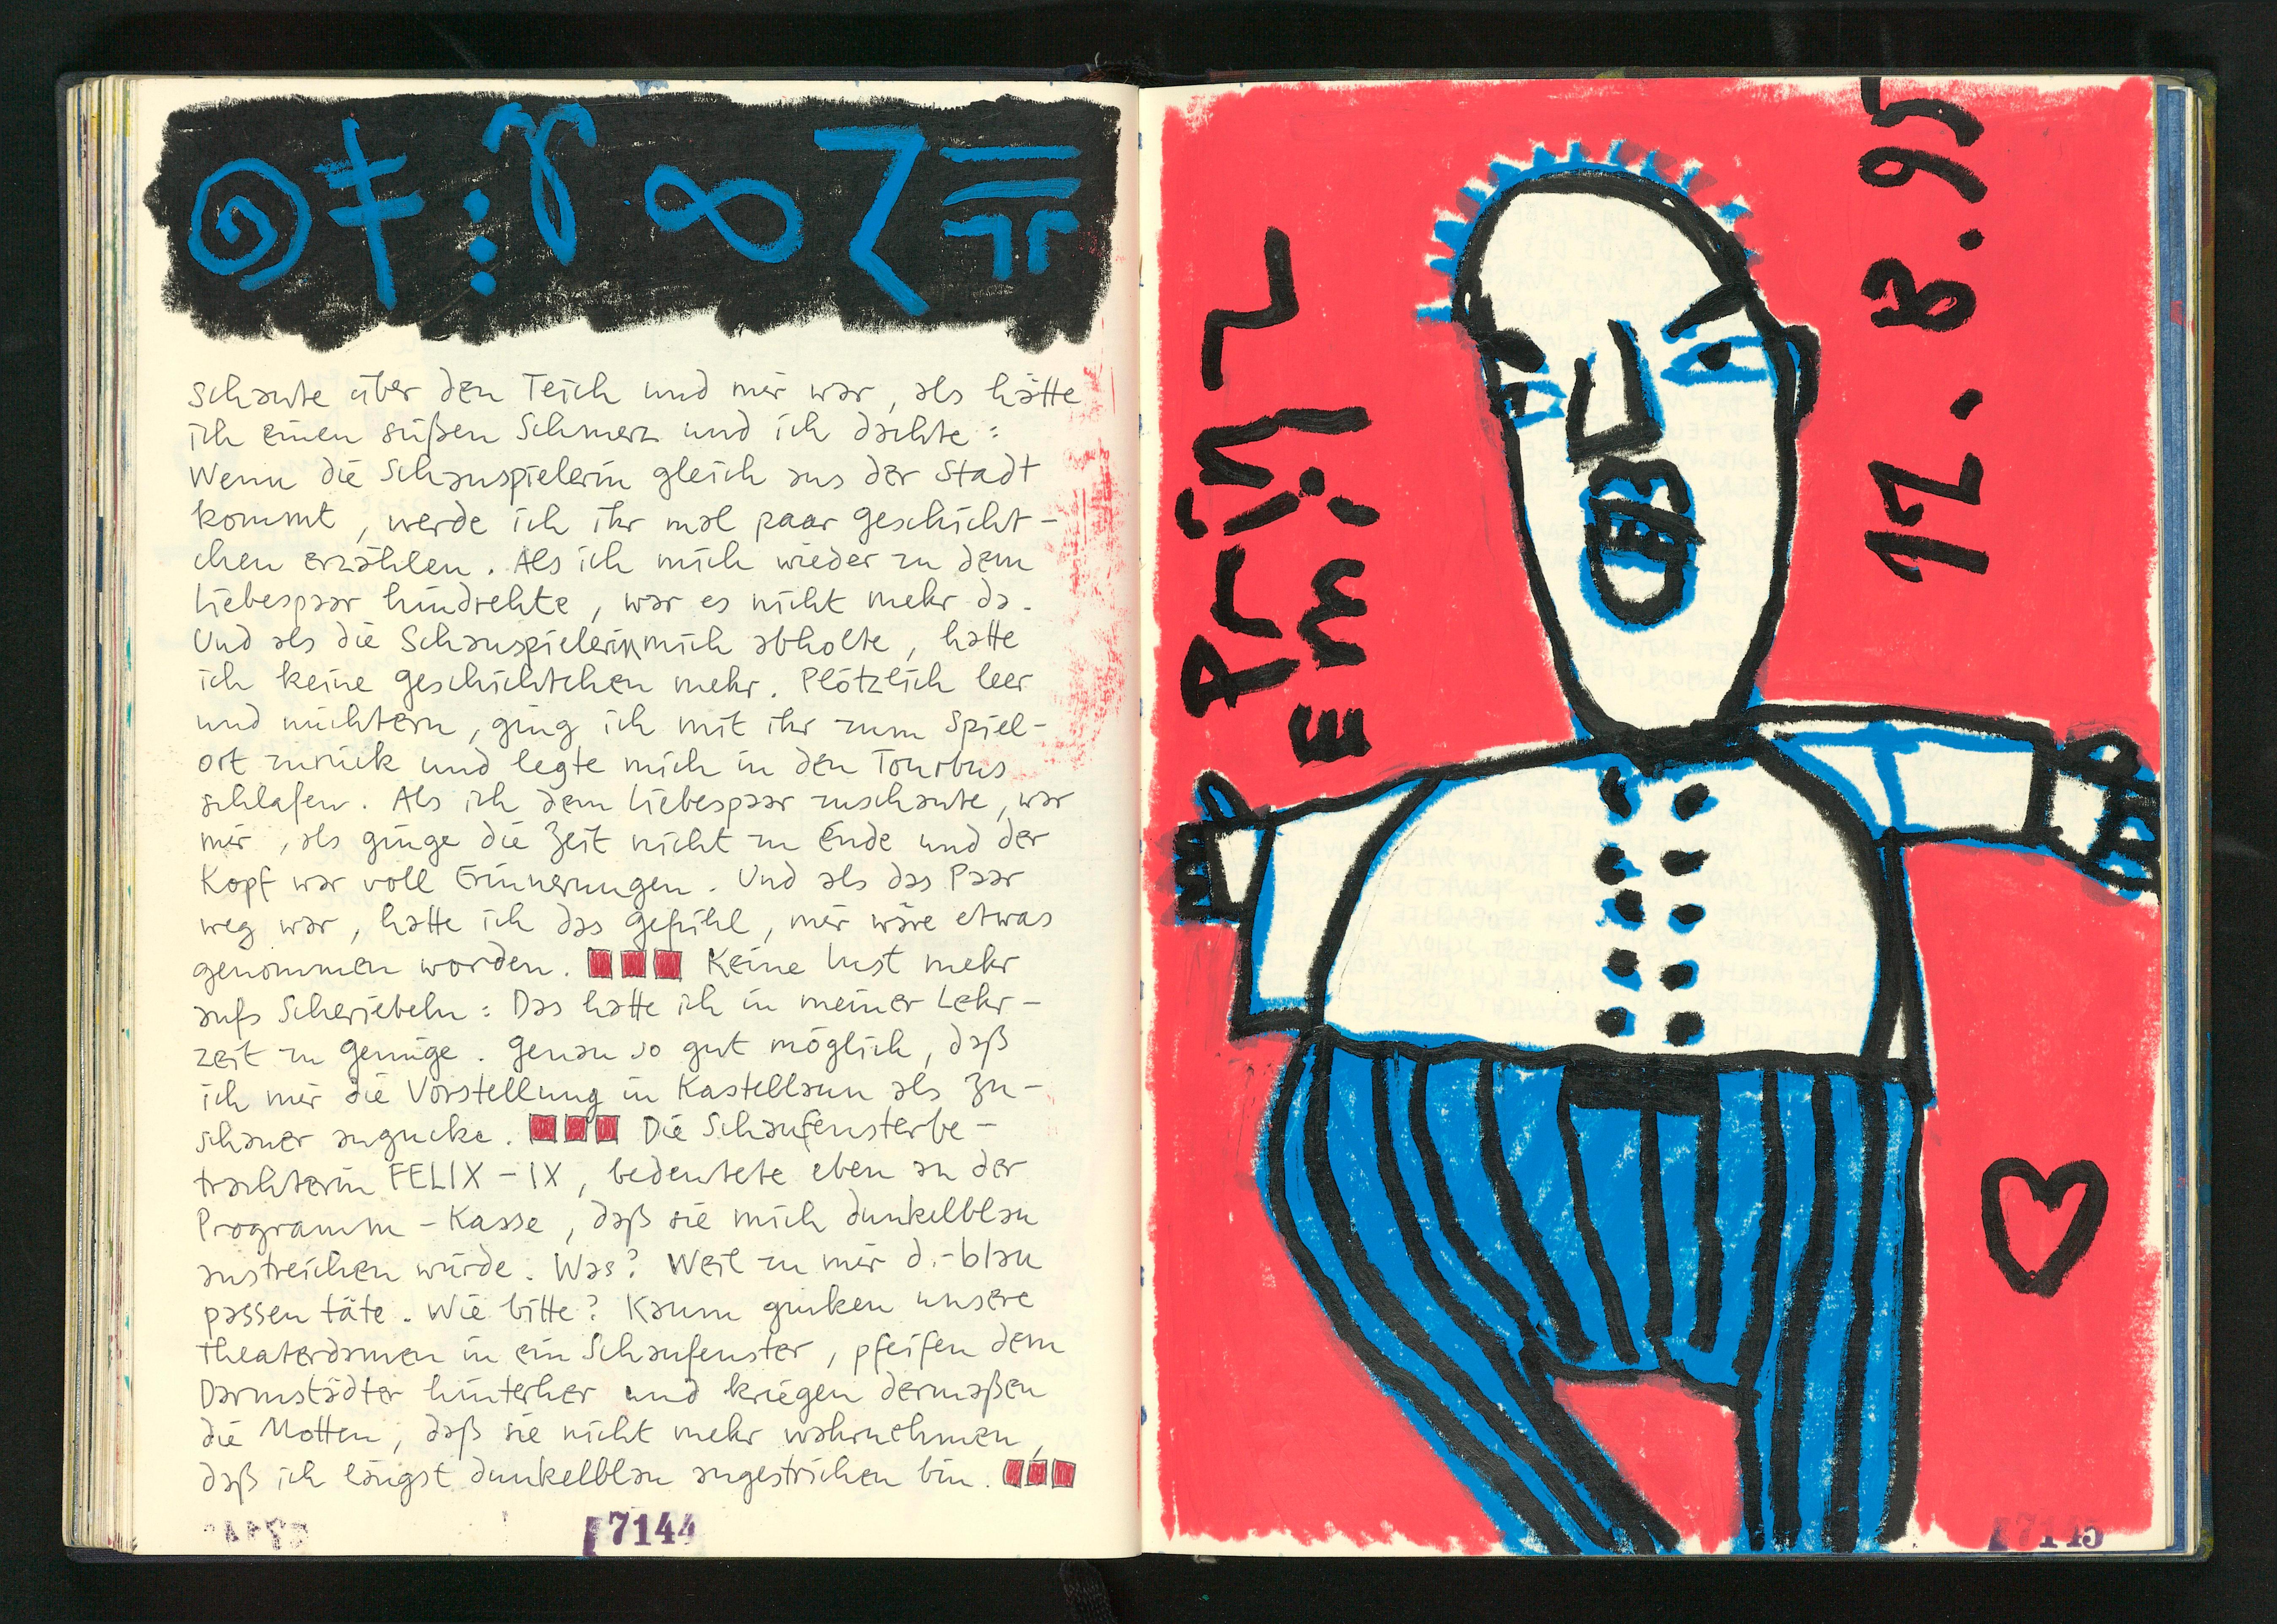 schaute über den Teich und mir war, als hätte
ich einen süßen Schmerz und ich dachte:
Wenn die Schauspielerin gleich aus der Stadt
kommt, werde ich ihr mal paar Geschicht-
chen erzählen. Als ich mich wieder zu dem
Liebespaar hindrehte, war es nicht mehr da.
Und als die Schauspielerin mich abholte, hatte
ich keine Geschichtchen mehr. Plötzlich leer
und nüchtern, ging ich mit ihr zum Spiel-
ort zurück und legte mich in den Tourbus
schlafen. Als ich dem Liebespaar zuschaute, war
mir, als ginge die Zeit nicht zu Ende und der
Kopf war voll Erinnerungen. Und als das Paar
weg war, hatte ich das Gefühl, mir wäre etwas
genommen worden. Keine Lust mehr
aufs Scheriebeln: Das hatte ich in meiner Lehr-
zeit zu Genüge. Genau so gut möglich, daß
ich mir die Vorstellung in Kastellaun als Zu-
schauer angucke. Die Schaufensterbe-
trachterin FELIX-IX, bedeutete eben an der
Programm-Kasse, daß sie mich dunkelblau
anstreichen würde. Was? Weil zu mir d.-blau
passen täte. Wie bitte? Kaum gucken unsere
Theaterdamen in ein Schaufenster, pfeifen dem
Darmstädter hinterher und kriegen dermaßen
die Motten, daß sie nicht mehr wahrnehmen,
daß ich längst dunkelblau angestrichen bin.
7144
Prinz
Emil
12.8.95
7145